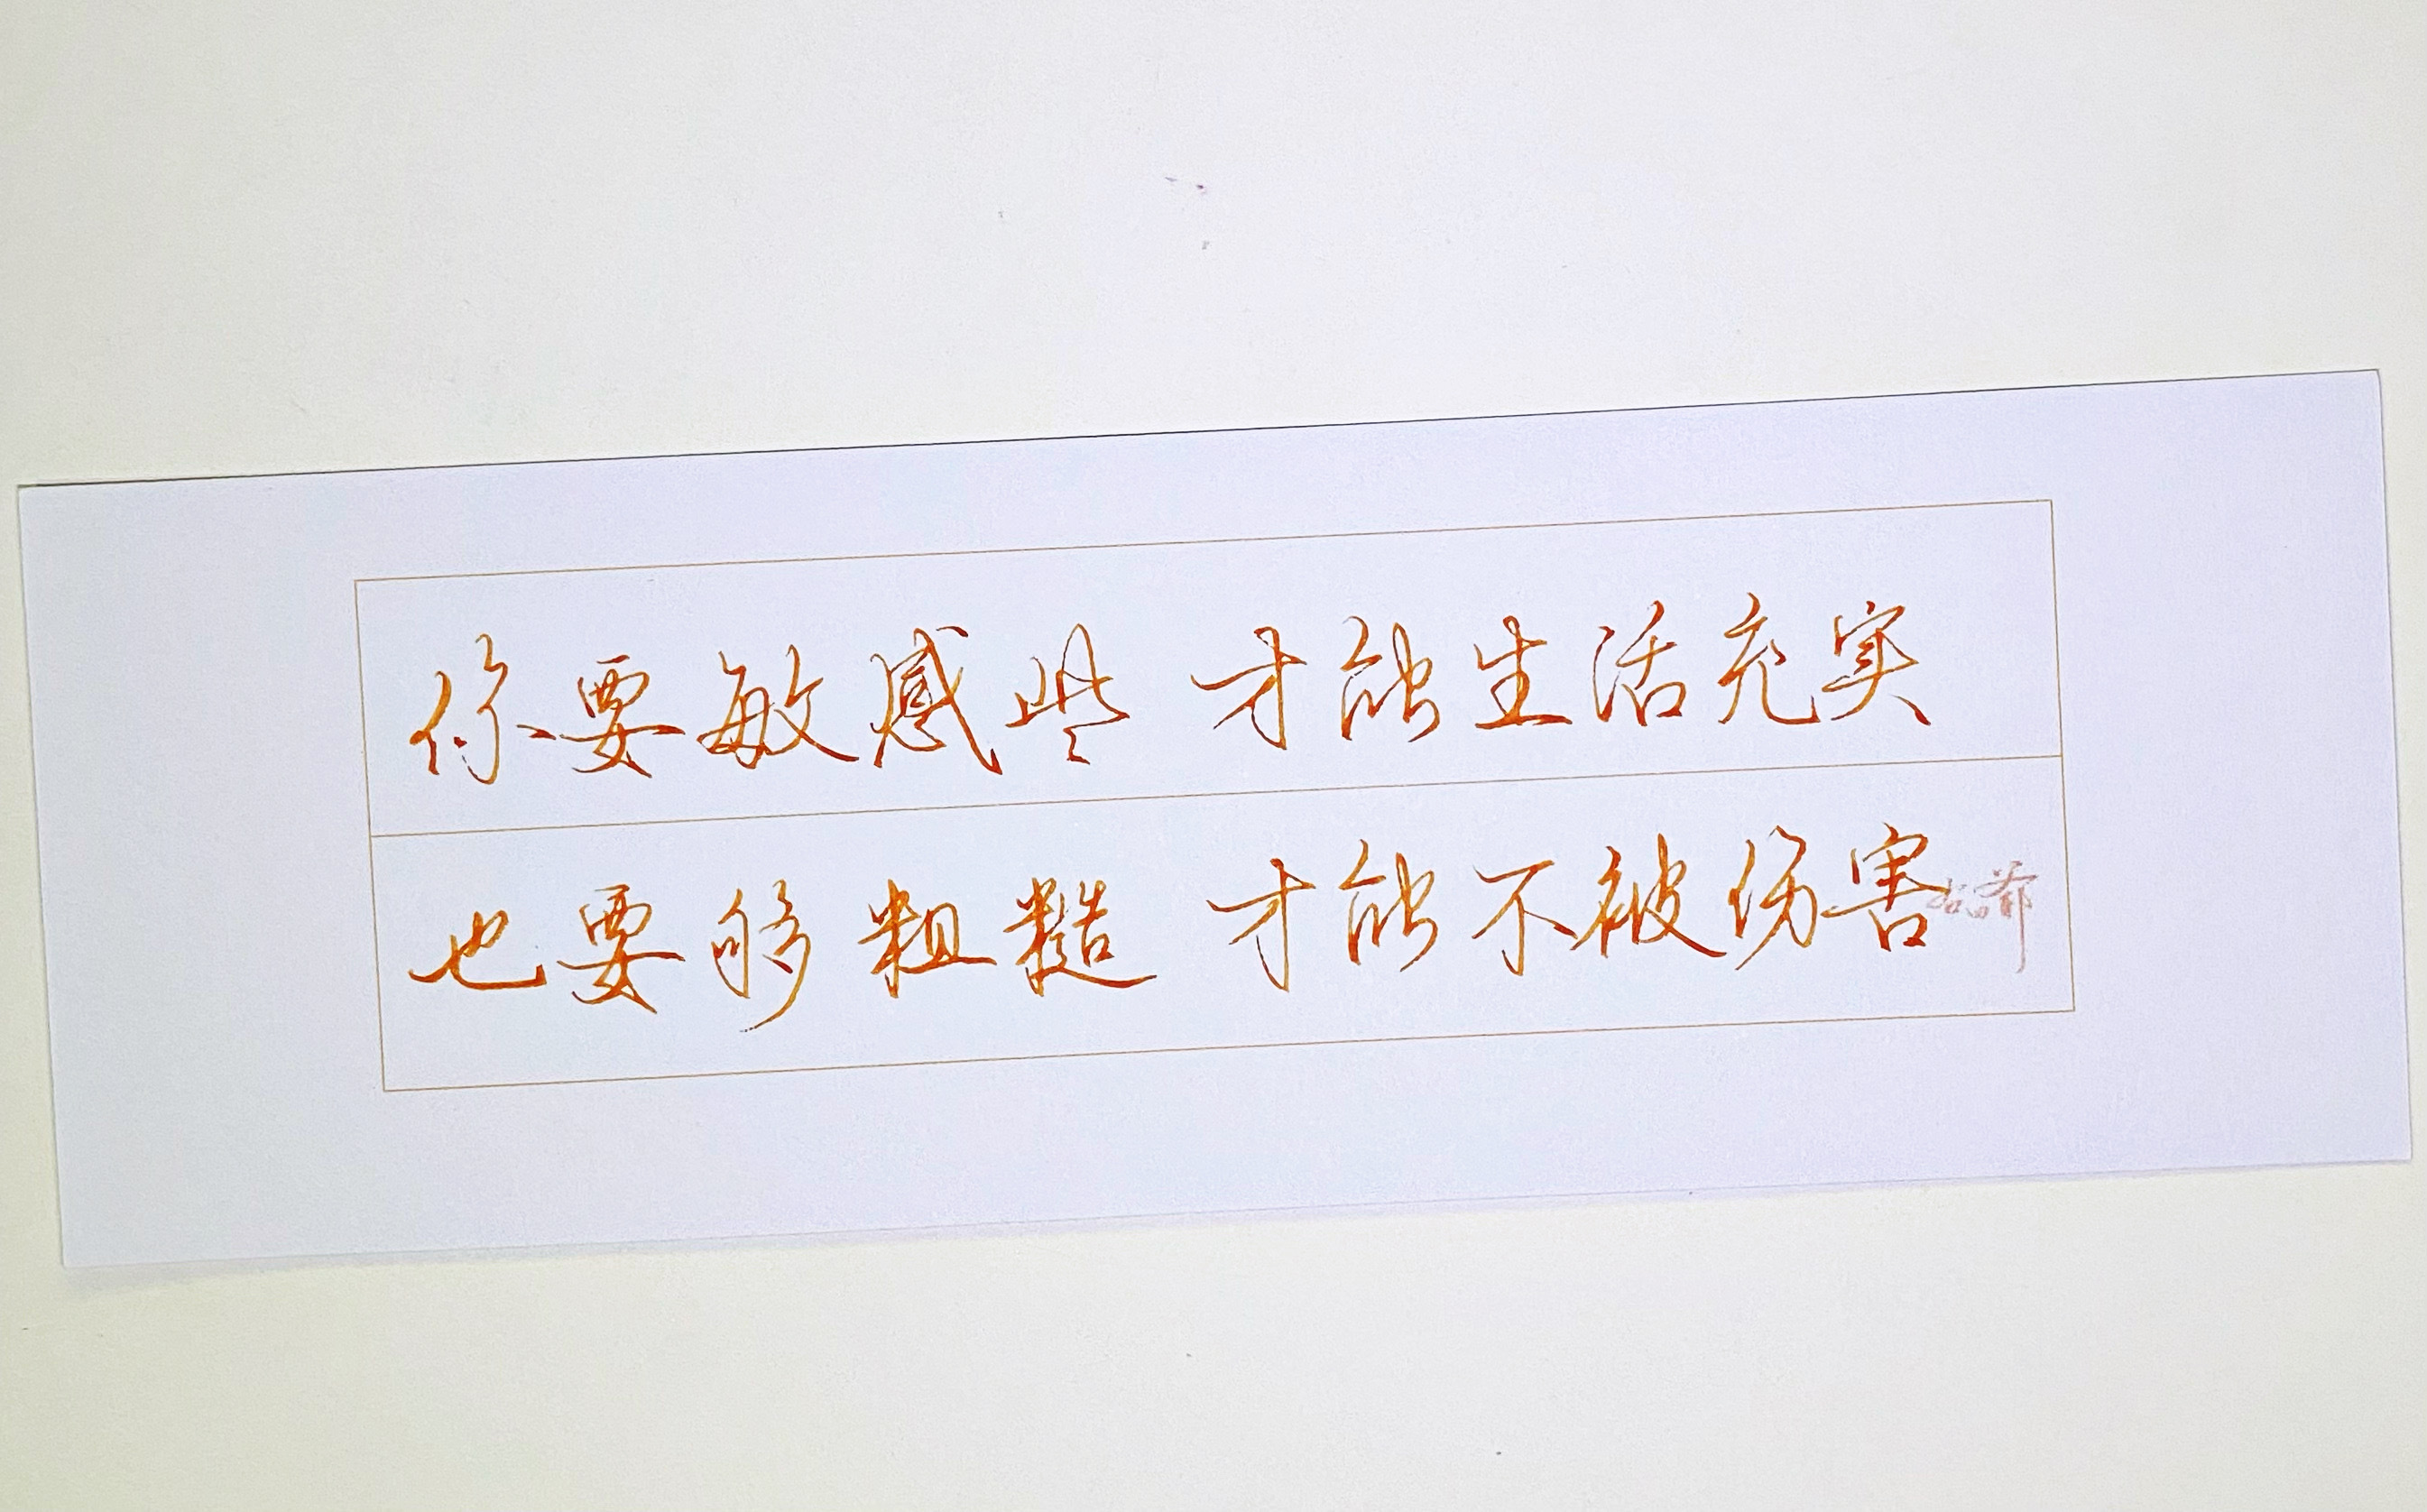 你要敏感些 才能生活充实
也要够粗糙 才能不被伤害